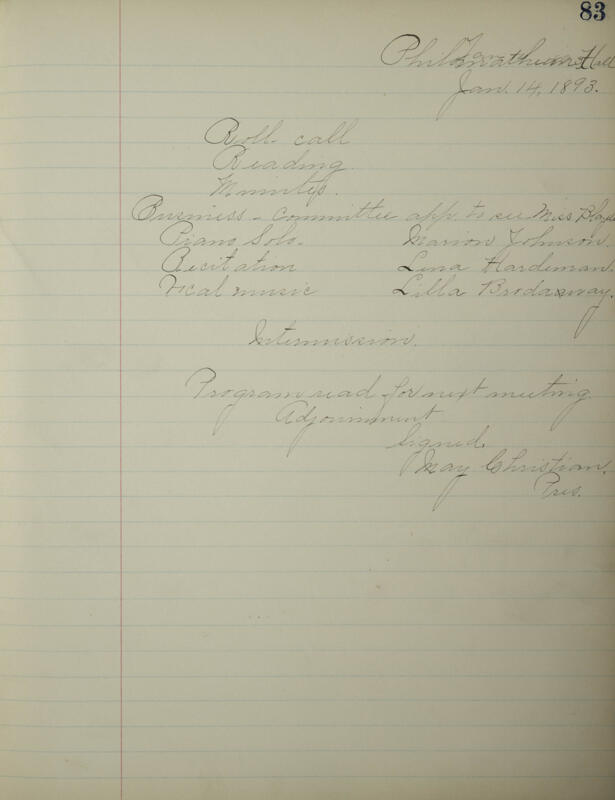 83
Philomathean Hall
Jan. 14, 1893.
Roll call
Reading
Minutes.
Business - Committee app. to see Miss
Piano Solo. Marion Johnson.
Recitation Lena Hardeman.
Vocal music Lilla Brodaway.
Intermission.
Program read for next meeting.
Adjournment
Signed.
May Christian.
Pres.